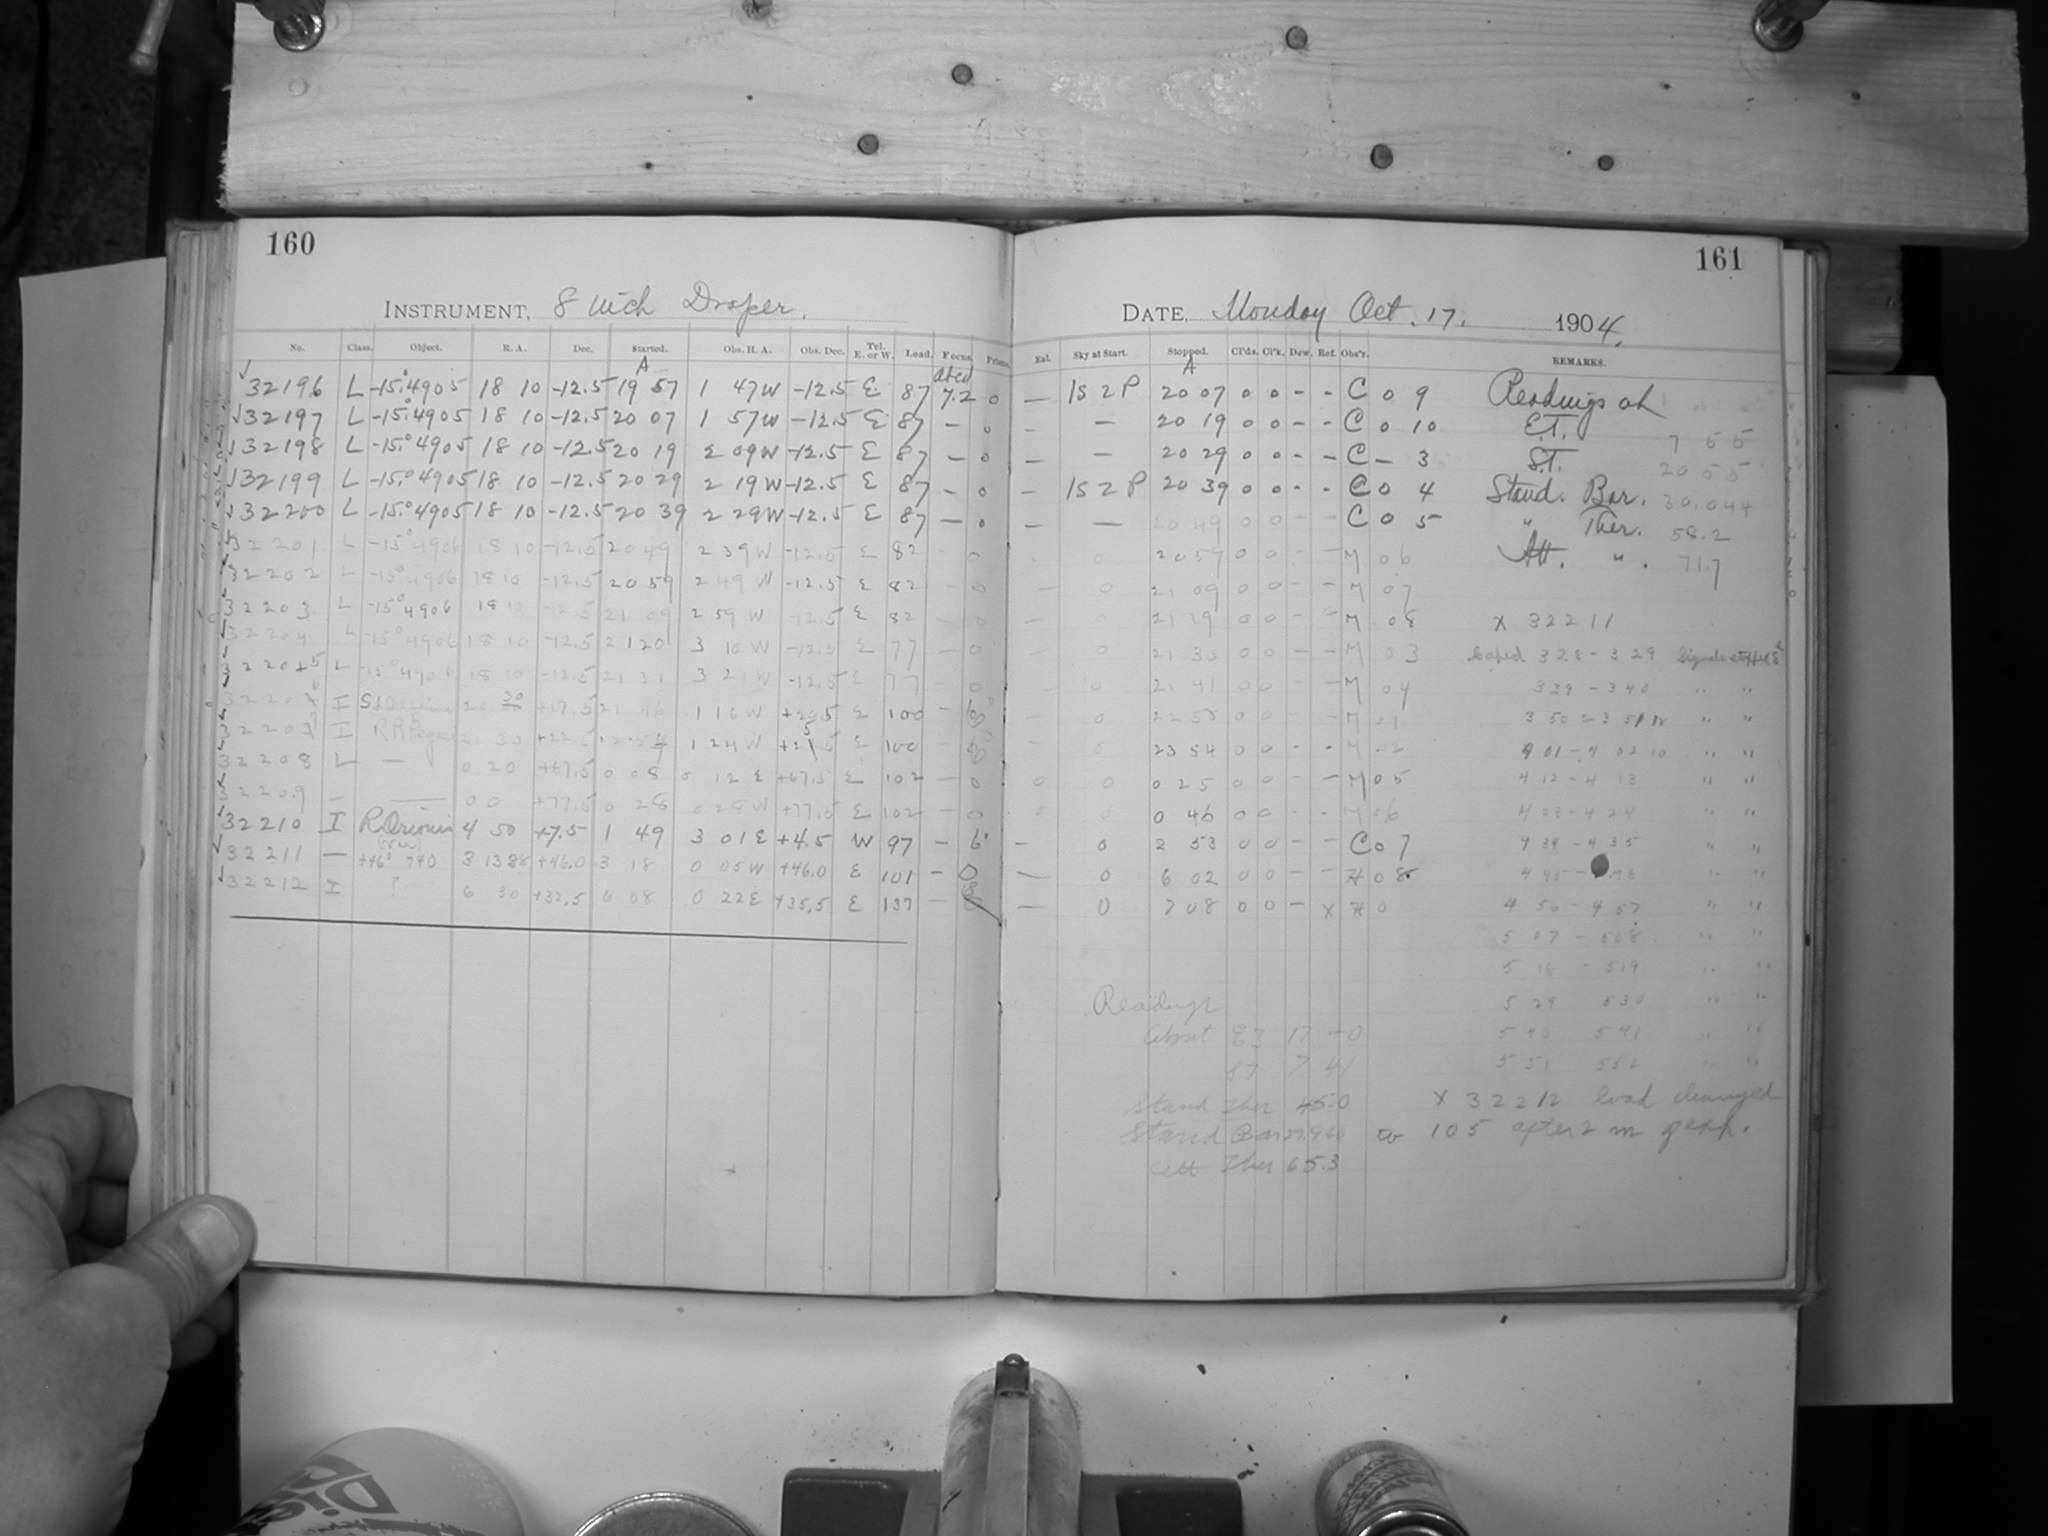 160
INSTRUMENT, 8 inch Draper.
No. Class. Object. R. A. Dec. Started. Obs. H. A. Obs. Dec. Tel. E. or W. Load. Focus. Prism.
A
32196 L -15°4905 18 10 -12.5 19 57 1 47W -12.5 E 87 7.2 0
32197 L -15°4905 18 10 -12.5 20 07 1 57W -12.5 E 87 - 0
32198 L -15°4905 18 10 -12.5 20 19 2 09W -12.5 E 87 - 0
32199 L -15°4905 18 10 -12.5 20 29 2 19W -12.5 E 87 - 0
32200 L -15°4905 18 10 -12.5 20 39 2 29W -12.5 E 87 - 0
32201 L -15°4906 18 10 -12.5 20 49 2 39W -12.5 E 82 - 0
32202 L -15°4906 18 10 -12.5 20 59 2 49W -12.5 E 82 - 0
32203 L -15°4906 18 10 -12.5 21 09 2 59W -12.5 E 82 - 0
32204 L -15°4906 18 10 -12.5 21 20 3 10W -12.5 E 77 - 0
32205 L -15°4906 18 10 -12.5 21 31 3 21W -12.5 E 77 - 0
I +17.5 1 16W E 100 -
I 1 24W E 100 -
32208 L — 0 20 +67.5 0 08 0 12E +67.5 E 102 - 0
32209 — — 0 0 +77.5 0 28 0 28W +77.5 E 102 - 0
32210 I R Orionis 4 50 +7.5 1 49 3 01E +4.5 W 97 - 6°
32211 — +46° 740 3 13 +46.0 3 18 0 05W +46.0 E 101 - 0
32212 I ? 6 30 +32.5 6 08 0 22E +35.5 E 137 -
161
DATE, Monday Oct. 17. 1904.
Exl. Sky at Start. Stopped. Cl'ds. Cl'k. Dew. Ref. Obs'r. REMARKS.
A
— 1S 2 P 20 07 0 0 - - C 0 9 Readings at
- — 20 19 0 0 - - C 0 10 E.T. 7 55
- — 20 29 0 0 - - C - 3 S.T. 20 55
- 1S 2 P 20 39 0 0 - - C 0 4 Stand. Bar. 30.044
- — 20 49 0 0 - - C 0 5 " Ther. 58.2
- 0 20 59 0 0 - - M 0 6 Att. " . 71.7
- 0 21 09 0 0 - - M 0 7
- 0 21 19 0 0 - - M 0 8 X 32211
- 0 21 30 0 0 - - M 0 3 Caped 328-329 Signals stopped
- 0 21 41 0 0 - - M 0 4 339-340 " "
- 0 22 58 0 0 - - M 0 1 " "
- 0 23 54 0 0 - - M 0 2 " "
0 0 0 25 0 0 - - M 0 5 412-413 " "
0 0 0 46 0 0 - - M 0 6 423-424 " "
- 0 2 53 0 0 - - C 0 7 434-435 " "
— 0 6 02 0 0 - - H 0 8 " "
— 0 7 08 0 0 - X H 0 456-457 " "
507-508 " "
518-519 " "
Readings 529 530 " "
About 83 17 540 541 " "
87 7 41 551 552 " "
Stand Ther 45.0 X 32212 load changed
Stand Bar to 105 after 2 m
Att Ther 65.3